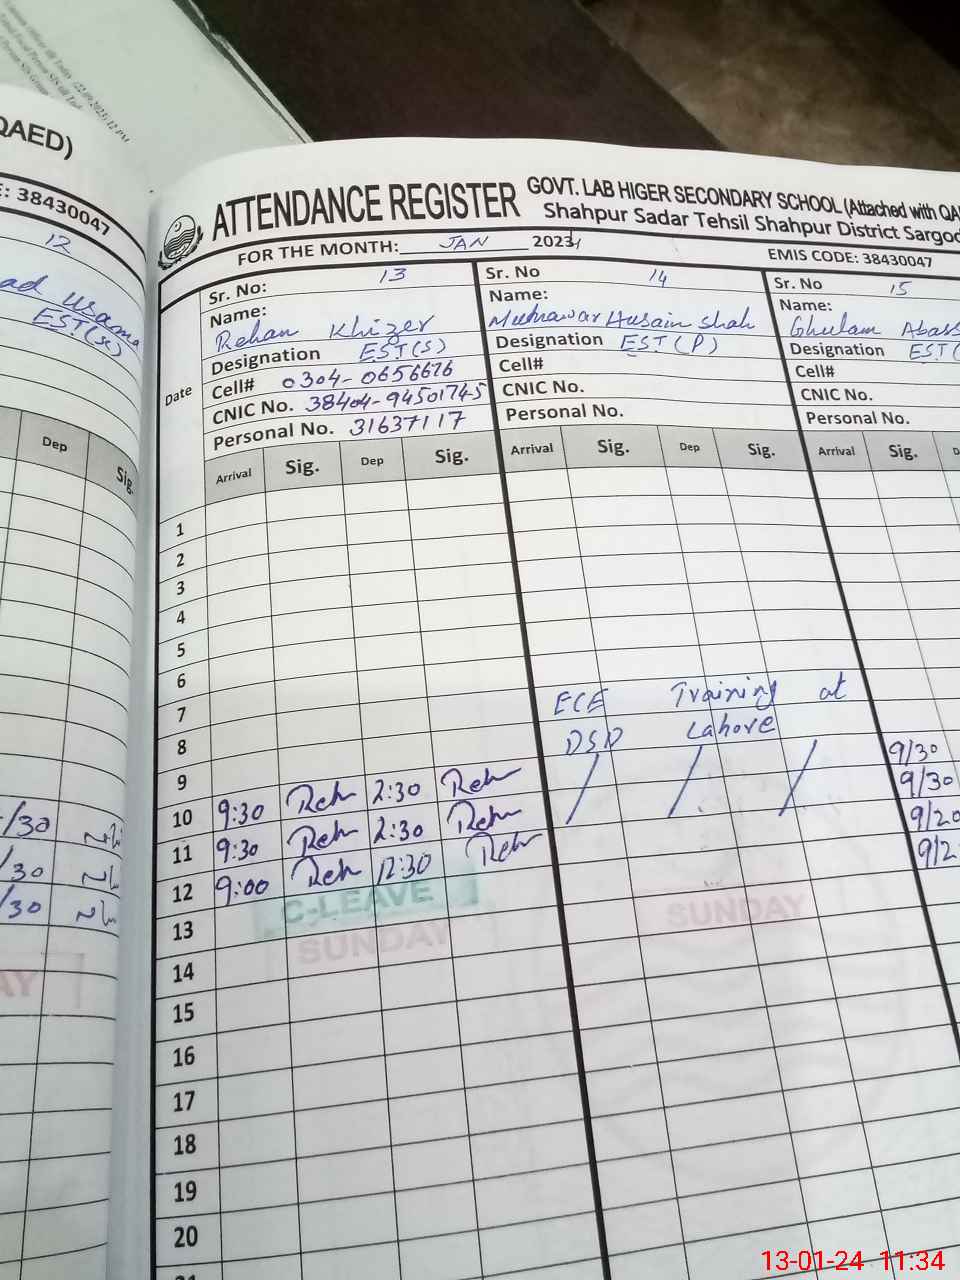 QAED)
E: 38430047
12
ad Usama
EST(s)
Dep
Sig.
/30
/30
/30
AY
ATTENDANCE REGISTER
GOVT. LAB HIGER SECONDARY SCHOOL (Attached with QA
Shahpur Sadar Tehsil Shahpur District Sargod
FOR THE MONTH: JAN 2023
EMIS CODE: 38430047
Date
Sr. No: 13
Name:
Rehan Khizer
Designation EST(S)
Cell# 0304-0656676
CNIC No. 38404-9450174-5
Personal No. 31637117
Sr. No 14
Name:
Husain Shah
Designation EST(P)
Cell#
CNIC No.
Personal No.
Sr. No 15
Name:
Ghulam Abass
Designation EST(
Cell#
CNIC No.
Personal No.
Arrival Sig. Dep Sig. Arrival Sig. Dep Sig. Arrival Sig. D
1
2
3
4
5
6
7 ECE Training at
8 DSD Lahore
9 9/30
10 9:30 Reh 2:30 Reh 9/30
11 9:30 Reh 2:30 Reh 9/20
12 9:00 Reh 12:30 Reh 9/2
C-LEAVE
13
SUNDAY SUNDAY
14
15
16
17
18
19
20
21
13-01-24 11:34